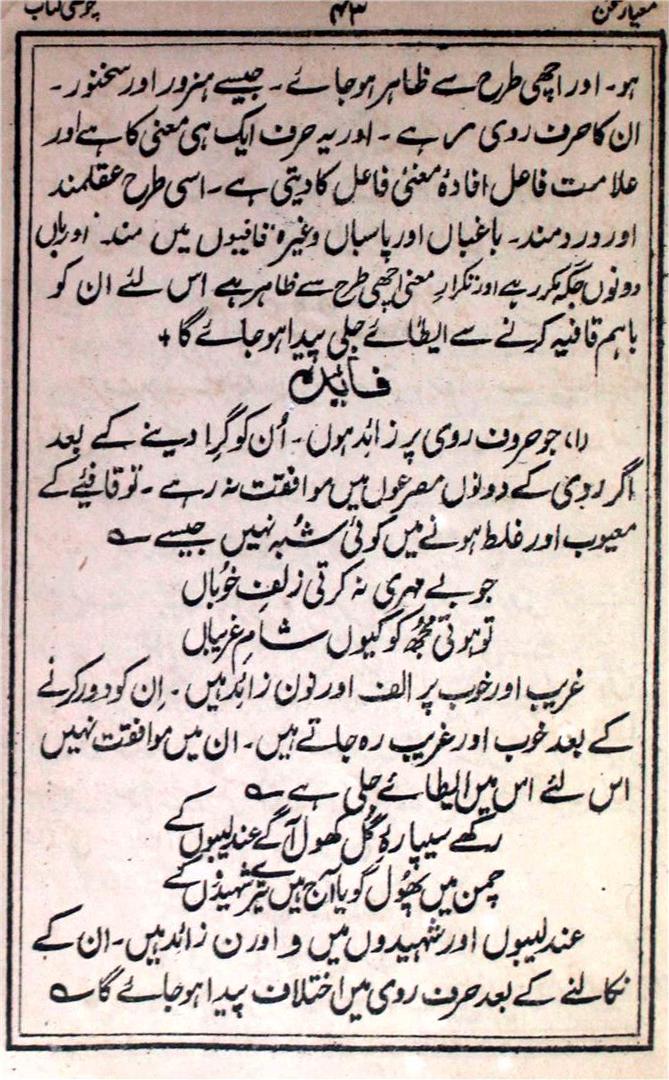 معیار سخن ۴۳ چوتھی کتاب
ہو۔ اور اچھی طرح سے ظاہر ہو جائے۔ جیسے ہنرور اور سخنور۔
ان کا حرف روی ر ہے۔ اور یہ حرف ایک ہی معنی کا ہے اور
علامت فاعل افادۂ معنیٔ فاعل کا دیتی ہے۔ اسی طرح عقلمند
اور دردمند۔ باغباں اور پاسباں وغیرہ قافیوں میں مند اور باں
دونوں جگہ مکرر ہے اور تکرارِ معنی اچھی طرح سے ظاہر ہے اس لئے ان کو
باہم قافیہ کرنے سے ایطائے جلی پیدا ہو جائے گا +
فایدہ
(۱) جو حروف روی پر زائد ہوں۔ اُن کو گرا دینے کے بعد
اگر روی کے دونوں مصرعوں میں موافقت نہ رہے۔ تو قافیئے کے
معیوب اور غلط ہونے میں کوئی شُبہ نہیں جیسے ؎
جو بے مہری نہ کرتی زلفِ خُوباں
تو ہوتی مُجھ کو کیوں شامِ غریباں
غریب اور خوب پر الف اور نون زائد ہیں۔ اِن کو دور کرنے
کے بعد خوب اور غریب رہ جاتے ہیں۔ ان میں موافقت نہیں
اس لئے اس میں ایطائے جلی ہے ؎
رکھے سیپارۂ گُل کھول آگے عندلیبوں کے
چمن میں پھُول گویا آج ہیں تیرے شہیدوں کے
عندلیبوں اور شہیدوں میں و اور ن زائد ہیں۔ ان کے
نکالنے کے بعد حرف روی میں اختلاف پیدا ہو جائے گا ؎